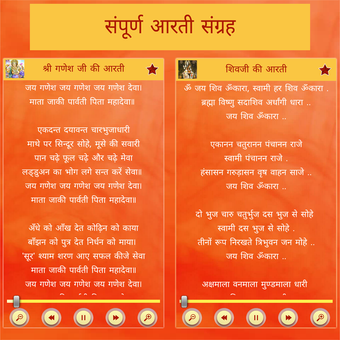 संपूर्ण आरती संग्रह
श्री गणेश जी की आरती
जय गणेश जय गणेश जय गणेश देवा।
माता जाकी पार्वती पिता महादेवा॥
एकदन्त दयावन्त चारभुजाधारी
माथे पर सिन्दूर सोहे, मूसे की सवारी
पान चढ़े फूल चढ़े और चढ़े मेवा
लड्डुअन का भोग लगे सन्त करें सेवा॥
जय गणेश जय गणेश जय गणेश देवा।
माता जाकी पार्वती पिता महादेवा॥
अँधे को आँख देत कोढ़िन को काया
बाँझन को पुत्र देत निर्धन को माया।
'सूर' श्याम शरण आए सफल कीजे सेवा
माता जाकी पार्वती पिता महादेवा॥
जय गणेश जय गणेश जय गणेश देवा।
शिवजी की आरती
ॐ जय शिव ॐकारा, स्वामी हर शिव ॐकारा .
ब्रह्मा विष्णु सदाशिव अर्धांगी धारा ..
जय शिव ॐकारा..
एकानन चतुरानन पंचानन राजे
स्वामी पंचानन राजे .
हंसासन गरुड़ासन वृष वाहन साजे ..
जय शिव ॐकारा..
दो भुज चारु चतुर्भुज दस भुज से सोहे
स्वामी दस भुज से सोहे .
तीनों रूप निरखते त्रिभुवन जन मोहे ..
जय शिव ॐकारा..
अक्षमाला वनमाला मुण्डमाला धारी